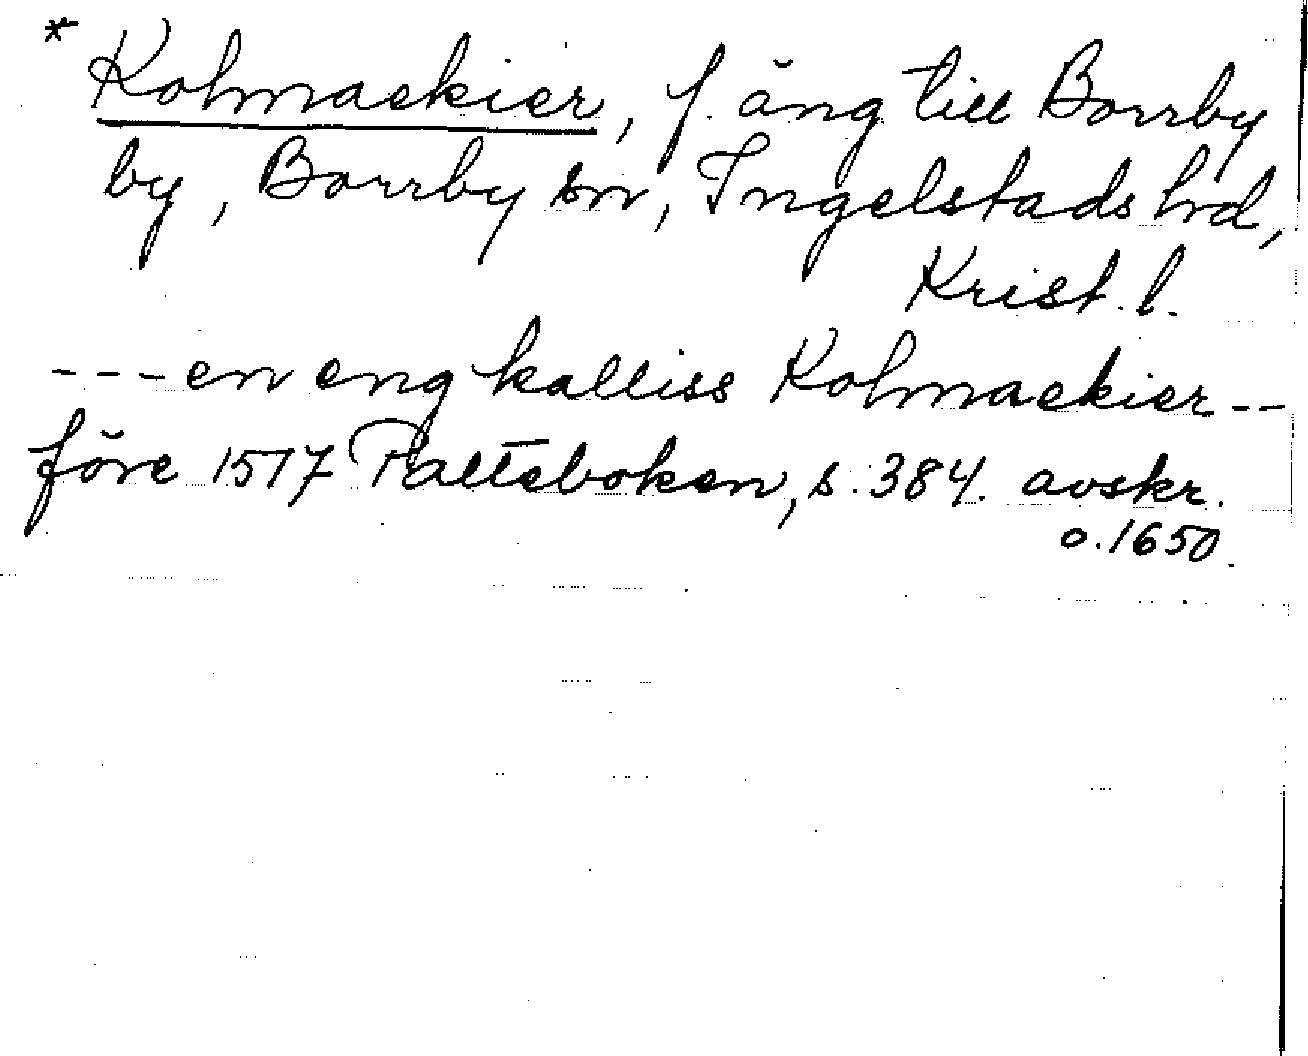 * Kolmaekier, f. äng till Borrby
by, Borrby sn, Ingelstads hd,
Krist. l.
---en eng kalliss Kolmaekier--
före 1517 Palteboken, s. 384. avskr.
o. 1650.